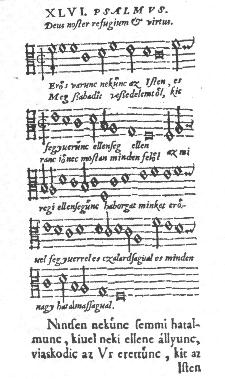 XLVI. PSALMVS.
Deus noster refugium & virtus.
Erős varunc nekűnc az Isten, es
Meg szabadit veszedelemtől, kit
fegyuerűnc ellenseg ellen
ranc iőnec mostan minden felől az mi
regi ellensegűnc haborgat minket erő-
uel fegyuerrel es czalardsagual es minden
nagy hatalmassagual.
Nintsen nekűnc semmi hatal-
munc, kiuel neki ellene állyunc,
viaskodic az Vr erettűnc, kit az
Isten